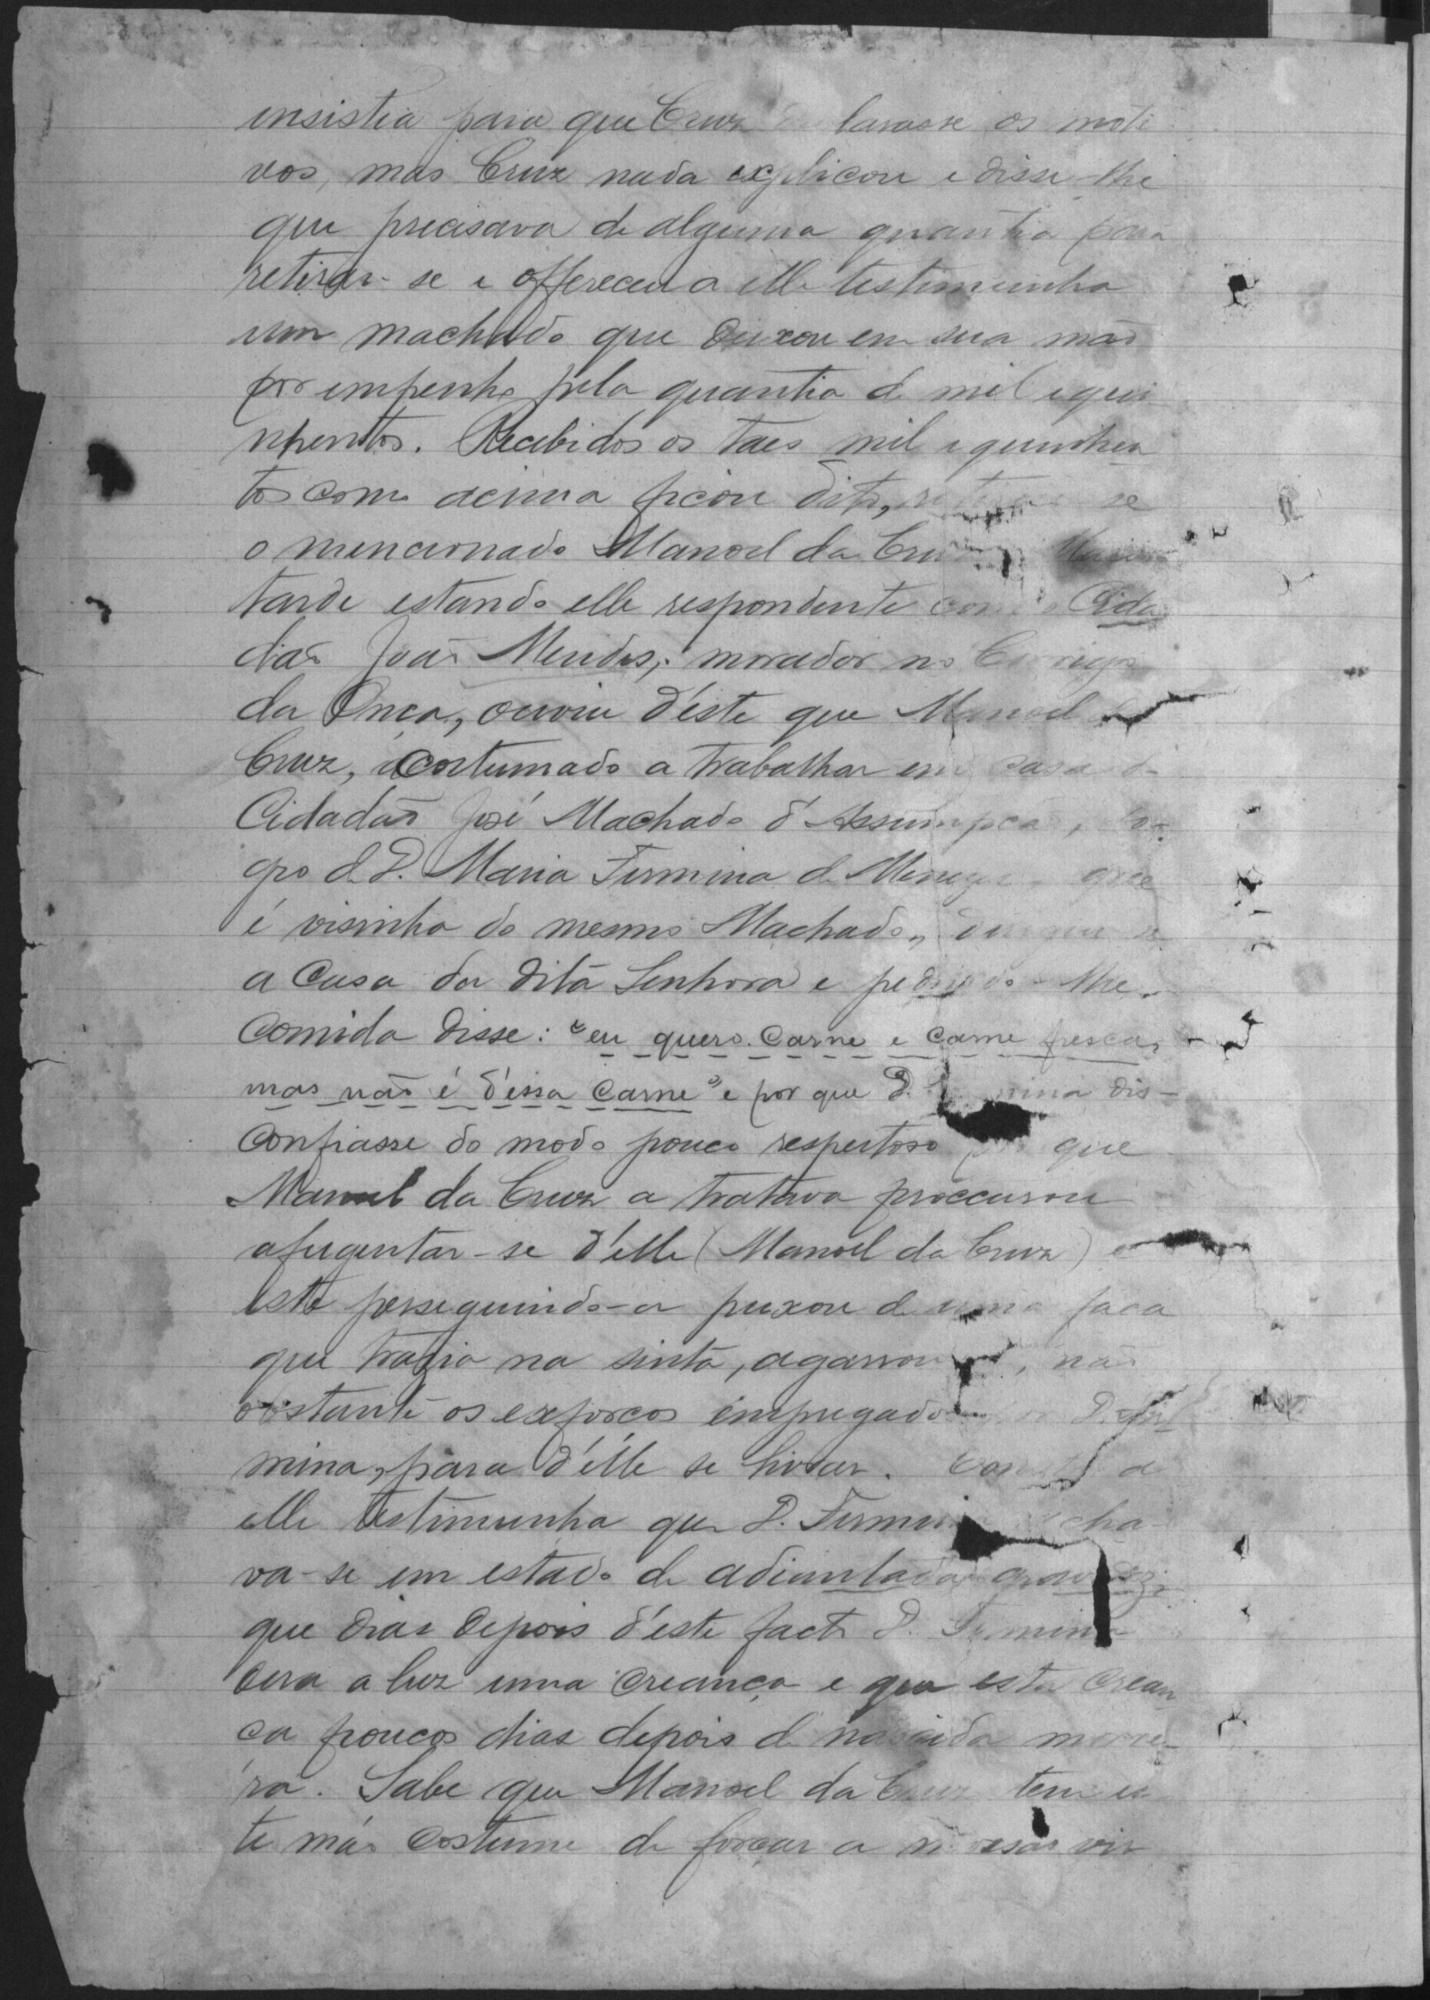 insistia para que Cruz larasse os moti
vos, mas Cruz nada explicou e disse-lhe
que precisava de alguma quantia para
retirar-se e offereceu a elle testimunha
um machado que deixou em sua mão
por impenho pela quantia de mil e qui
nhentos. Recebidos os taes mil e quinhen
tos como acima ficou dito, se
o mencionado Manoel da Cruz Mais
tarde estando elle respondente com o Cida
dão João Mendes, morador no Corrego
da Onça, ouviu d'éste que Manoel da
Cruz, acostumado a trabalhar em casa do
Cidadão José Machado d'Assumpção,
gro de D. Maria Firmina de Menezes que
é visinha do mesmo Machado, dirigiu se
a Casa da dita Senhora e pedindo-lhe
Comida disse: "eu quero carne e carne fresca,
mas não é d'éssa carne" e por que D. Firmina dis-
confiasse do modo pouco respeitoso por que
Manoel da Cruz a tratava proccurou
afugentar-se d'élle (Manoel da Cruz) e
este perseguindo-a puxou de uma faca
que trazia na sinta, agarrou não
obstante os exforços impregados por D. Fir
mina, para d'élle se livrar. Consta a
elle testimunha que D. Firmina acha
va-se em estado de adiantada gravidez,
que dias depois d'éste facto D. Firmina
dera a luz uma creança e que esta crean
ça poucos dias depois de nascida morre-
ra. Sabe que Manoel da Cruz tem es
te máo costume de forçar a vir